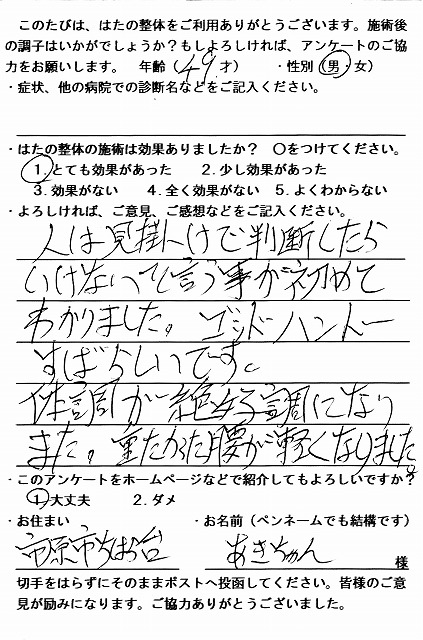 このたびは、はたの整体をご利用ありがとうございます。施術後
の調子はいかがでしょうか?もしよろしければ、アンケートのご協
力をお願いします。 年齢(49才) ・性別(男・女)
・症状、他の病院での診断名などをご記入ください。
・はたの整体の施術は効果ありましたか? ○をつけてください。
1.とても効果があった 2.少し効果があった
3.効果がない 4.全く効果がない 5.よくわからない
・よろしければ、ご意見、ご感想などをご記入ください。
人は見掛けで判断したら
いけないって言う事が初めて
わかりました。ゴッドハンドー
すばらしいです。
体調が絶好調になり
ました。重たかった腰が軽くなりました。
・このアンケートをホームページなどで紹介してもよろしいですか?
1.大丈夫 2.ダメ
・お住まい ・お名前(ペンネームでも結構です)
市原市ちはら台 あきちゃん 様
切手をはらずにそのままポストへ投函してください。皆様のご意
見が励みになります。ご協力ありがとうございました。